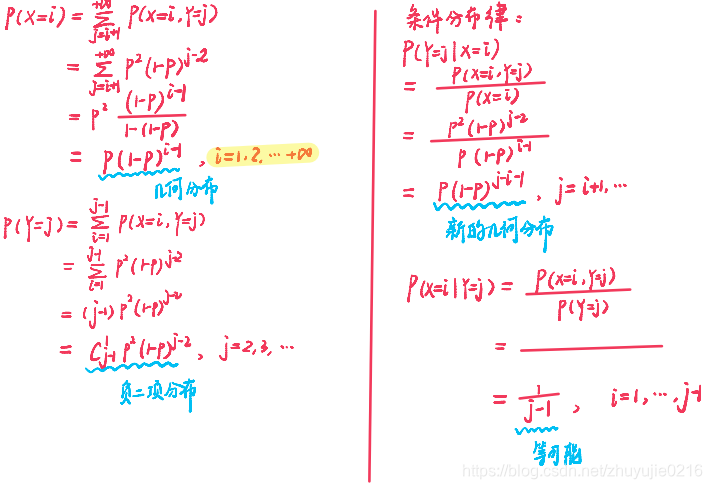 P(X=i) = \sum_{j=i+1}^{+∞} P(X=i, Y=j)
= \sum_{j=i+1}^{+∞} p²(1-p)^{j-2}
= p² \frac{(1-p)^{i-1}}{1-(1-p)}
= p(1-p)^{i-1} , i=1,2,⋯+∞
几何分布
P(Y=j) = \sum_{i=1}^{j-1} P(X=i, Y=j)
= \sum_{i=1}^{j-1} p²(1-p)^{j-2}
= (j-1) p²(1-p)^{j-2}
= C_{j-1}^{1} p²(1-p)^{j-2} , j=2,3,⋯
负二项分布
条件分布律：
P(Y=j|X=i)
= \frac{P(X=i,Y=j)}{P(X=i)}
= \frac{p²(1-p)^{j-2}}{p(1-p)^{i-1}}
= p(1-p)^{j-i-1} , j=i+1,⋯
新的几何分布
P(X=i|Y=j) = \frac{P(X=i,Y=j)}{P(Y=j)}
= ————
= \frac{1}{j-1} , i=1,⋯,j-1
等可能
https://blog.csdn.net/zhuyujie0216